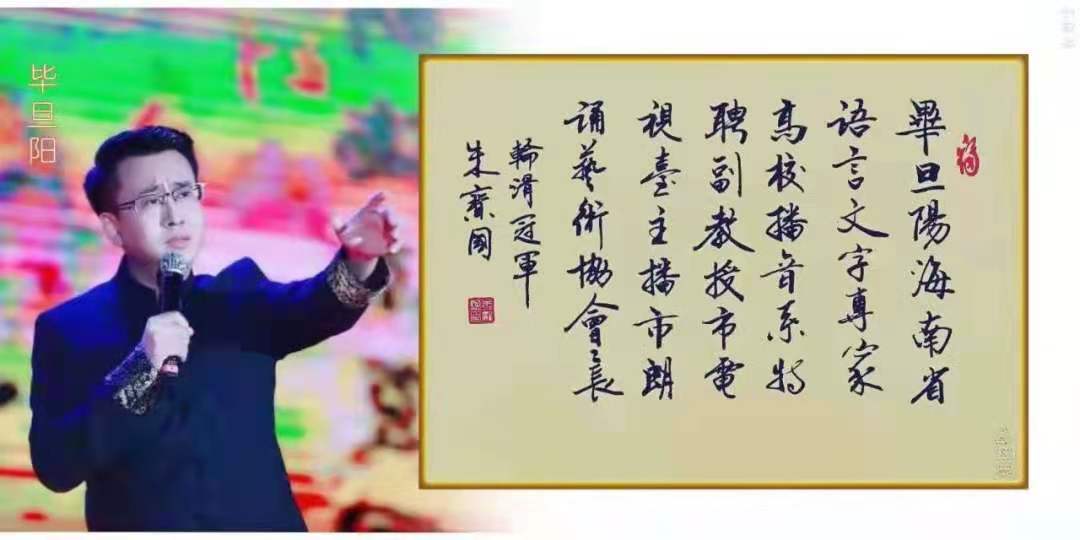 毕旦阳
畢旦陽海南省
语言文字專家
高校播音系特
聘副教授市電
視臺主播市朗
誦藝術協會長
輪滑冠軍
朱寳國